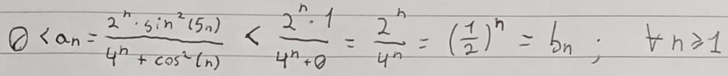 0 < aₙ = (2ⁿ · sin²(5n)) / (4ⁿ + cos²(n)) < (2ⁿ · 1) / (4ⁿ + 0) = 2ⁿ / 4ⁿ = (1/2)ⁿ = bₙ ; ∀ n ⩾ 1